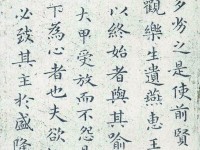 多劣之是使前賢
觀樂生遺燕惠王
以終始者與其喻
大甲受放而不怨是
下為心者也夫欲
必致其主於盛隆